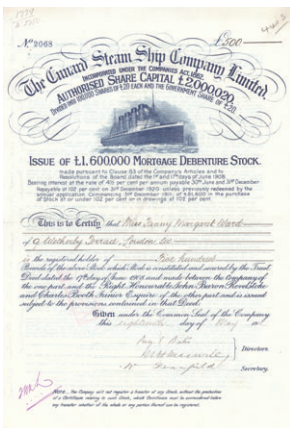 No. 2068
£500
The Cunard Steam Ship Company Limited
INCORPORATED UNDER THE COMPANIES ACT, 1862.
AUTHORISED SHARE CAPITAL £2,000,020.
DIVIDED INTO 100,000 SHARES OF £20 EACH AND ONE GOVERNMENT SHARE OF £20
ISSUE OF £1,600,000 MORTGAGE DEBENTURE STOCK.
made pursuant to Clause 53 of the Company's Articles and to
Resolutions of the Board dated the 1st and 17th days of June 1908
Bearing interest at the rate of 4½ per cent per annum payable 30th June and 31st December
This is to Certify that Miss Fanny Margaret Ward
of 9 Terrace, London
is the registered holder of Five hundred
Pounds of the above Stock which Stock is constituted and secured by the Trust
Deed dated the day of June 1908 and made between the Company of
the one part, and the Right Honourable John Baron Revelstoke
and Charles Booth Junior Esquire of the other part and is issued
subject to the provisions contained in that Deed.
Given under the Common Seal of the Company
this eighteenth day of May
Directors.
Secretary.
NOTE.— The Company will not register a transfer of any Stock, without the production
of a Certificate relating to such Stock, which Certificate must be surrendered before
any transfer whether of the whole or any portion thereof can be registered.